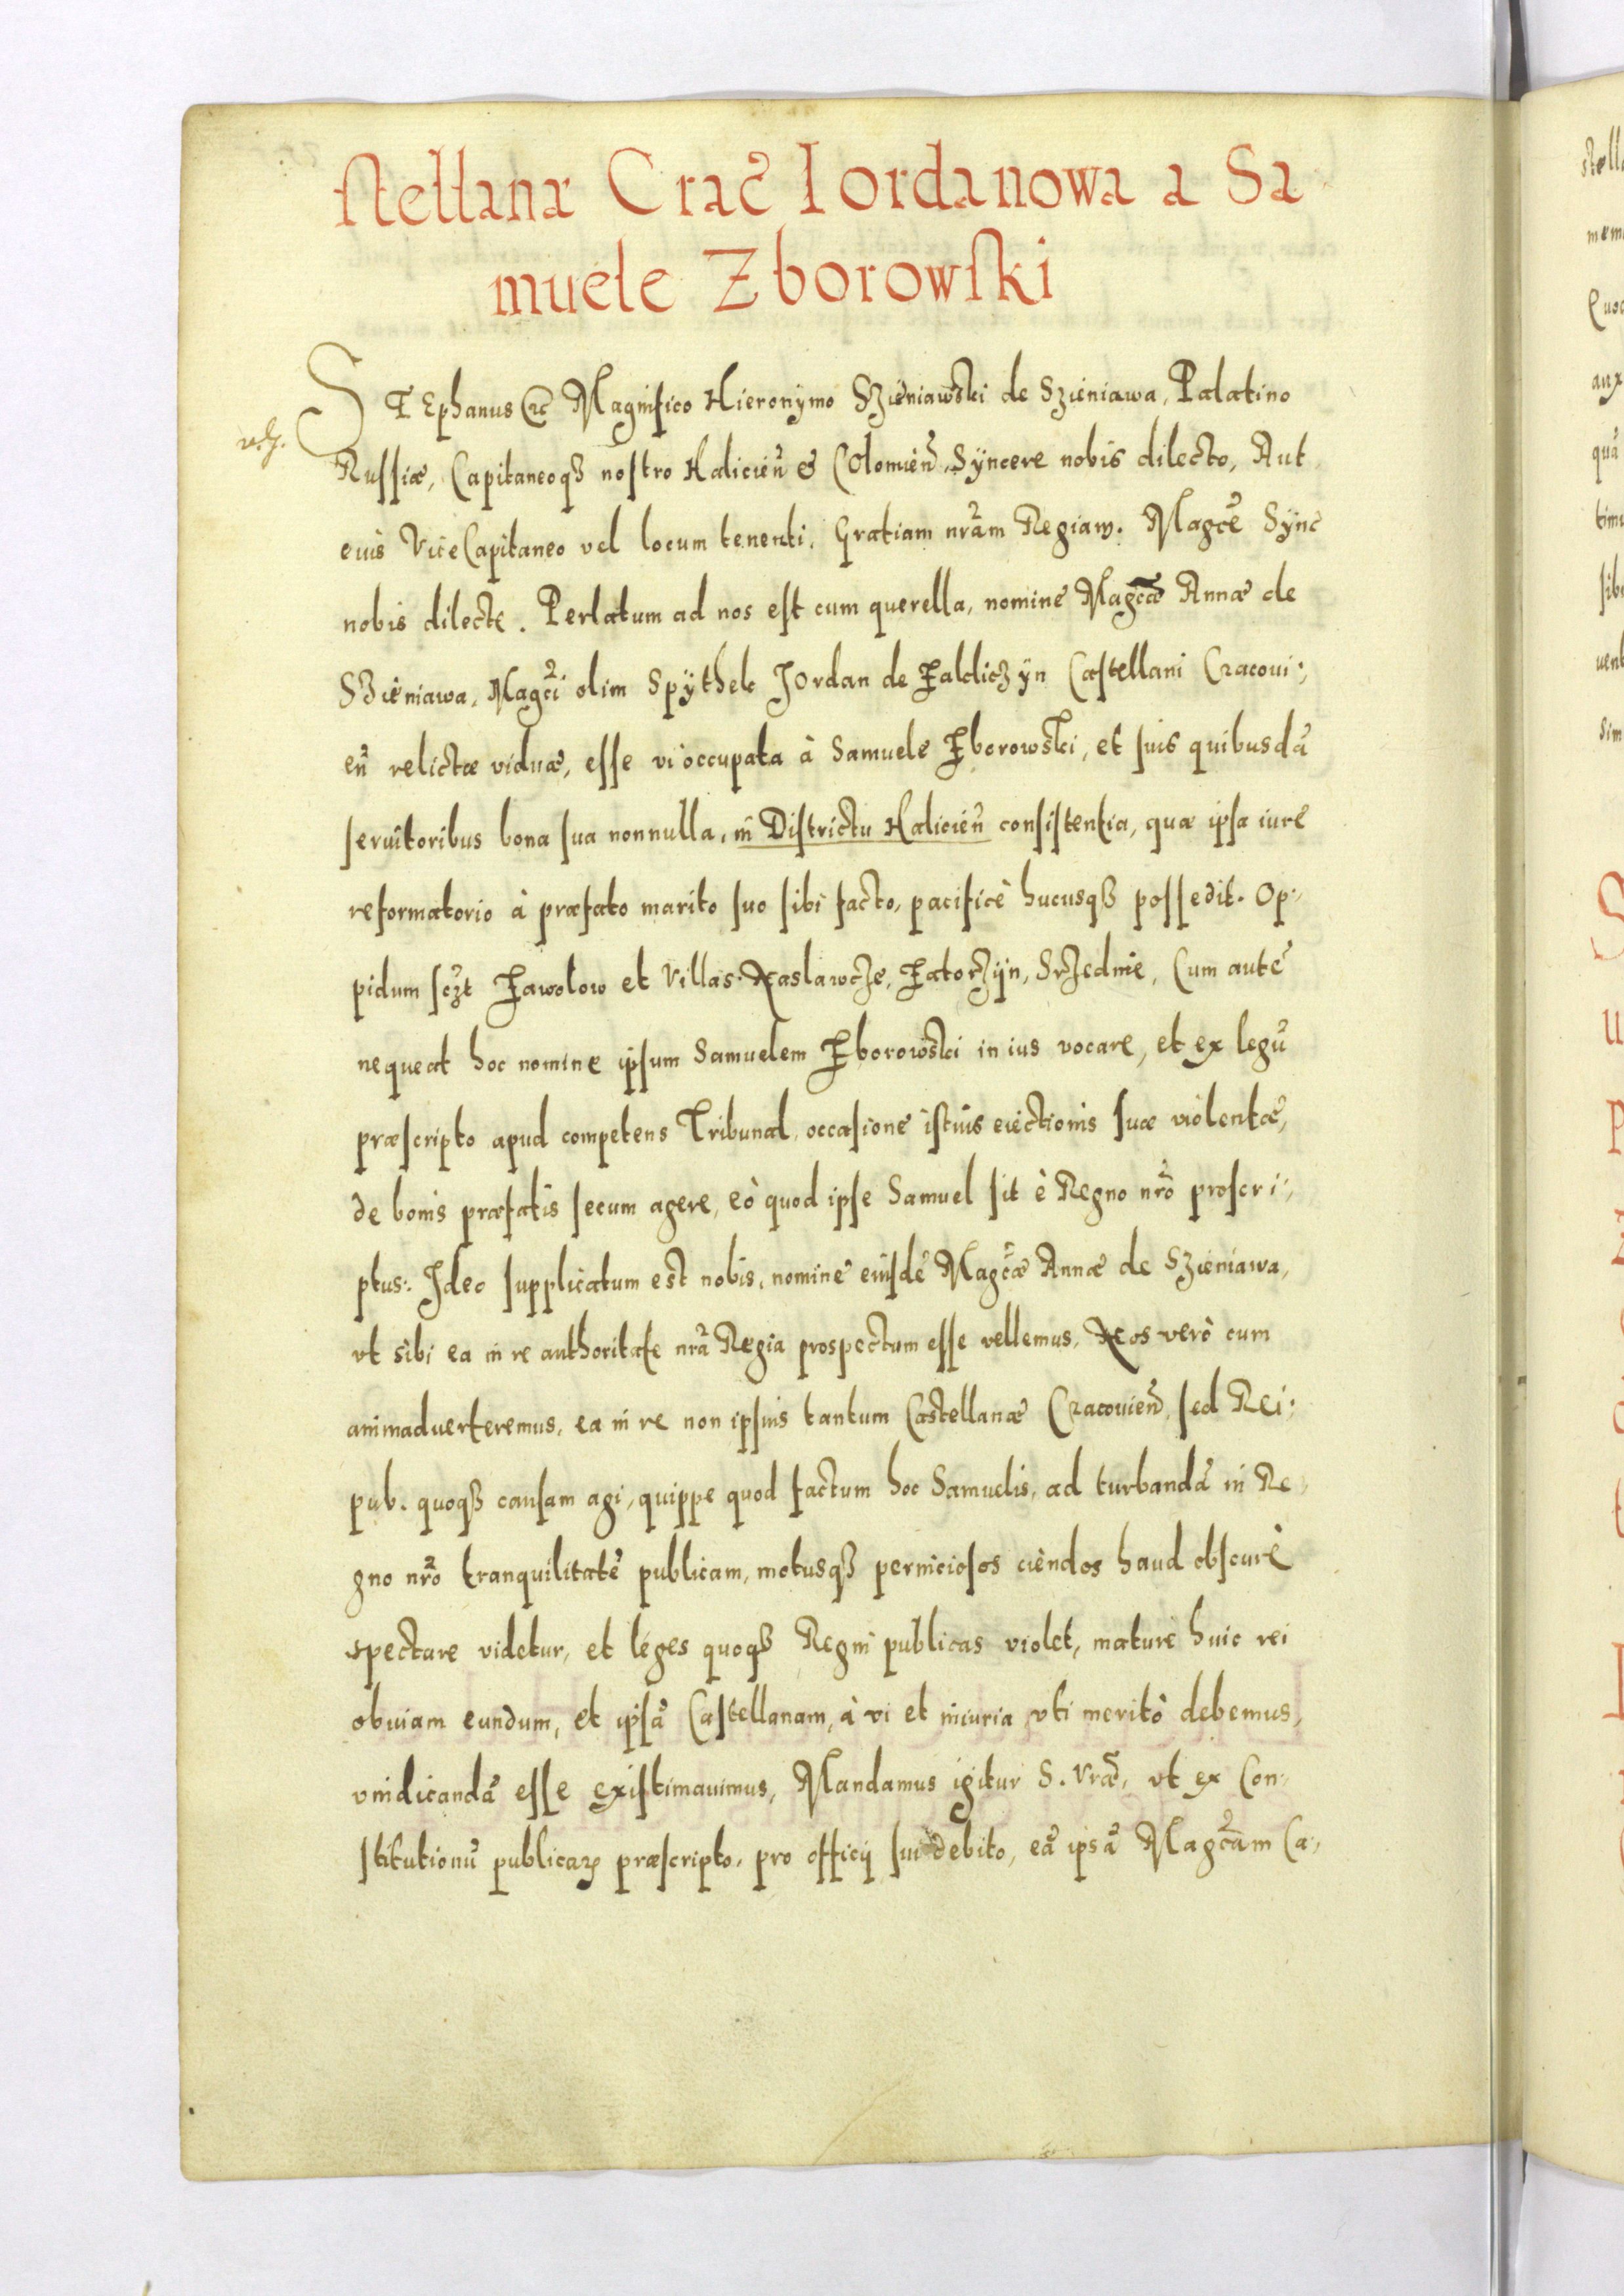 stellanæ Crac̃ Iordanowa a Sa
muele Zborowski
STEphanus &c Magnifico Hieronymo Szieniawski de Szieniawa, Palatino
Russiæ, Capitaneoqꝫ nostro Halicieñ & Colomieñ, Syncere nobis dilecto, Aut
eius ViceCapitaneo vel locum tenenti, Gratiam nr̃am Regiam. Magc̃e Sync̃
nobis dilecte. Perlatum ad nos est cum querella, nomine Magc̃æ Annæ de
Szieniawa, Magc̃i olim Spÿthek Jordan de Zakliczÿn Castellani Cracoui:
eñ relictæ viduæ, esse vi occupata à Samuele Zborowski, et suis quibusdã
seruitoribus bona sua nonnulla, in Districtu Halicieñ consistentia, quæ ipsa iure
reformatorio à præfato marito suo sibi facto, pacificè hucusqꝫ possedit. Op:
pidum sc̃zt Zawolow et Villas. Naslawcze, Zatorzÿn, Srzednie, Cum autẽ
nequeat hoc nomine ipsum Samuelem Zborowski in ius vocare, et ex legũ
præscripto apud competens Tribunal, occasione istius eiectionis suæ violentæ,
de bonis præfatis secum agere, eò quod ipse Samuel sit è Regno nr̃o proscri:
ptus: Ideo supplicatum est nobis, nomine eiusdẽ Magc̃æ Annæ de Szieniawa,
vt sibi ea in re authoritate nr̃a Regia prospectum esse vellemus, Nos verò cum
animaduerteremus, ea in re non ipsius tantum Castellanæ Cracouieñ, sed Rei:
pub. quoqꝫ causam agi, quippe quod factum hoc Samuelis, ad turbandã in Re
gno nr̃o tranquilitatẽ publicam, motusqꝫ perniciosos ciendos haud obscurè
spectare videtur, et leges quoqꝫ Regni publicas violet, maturè huic rei
obuiam eundum, et ipsã Castellanam, à vi et iniuria vti meritò debemus,
vindicandã esse existimauimus, Mandamus igitur S. Vræ, vt ex Con:
stitutionũ publicaꝝ præscripto, pro officij sui debito, eã ipsã Magc̃am Ca: